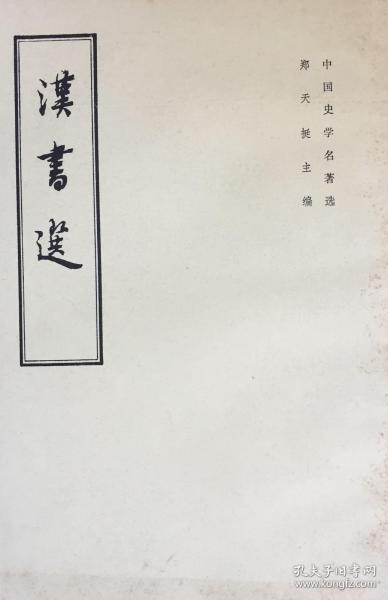 中国史学名著选
郑天挺主编
漢書選
孔夫子旧书网
www.kongfz.com